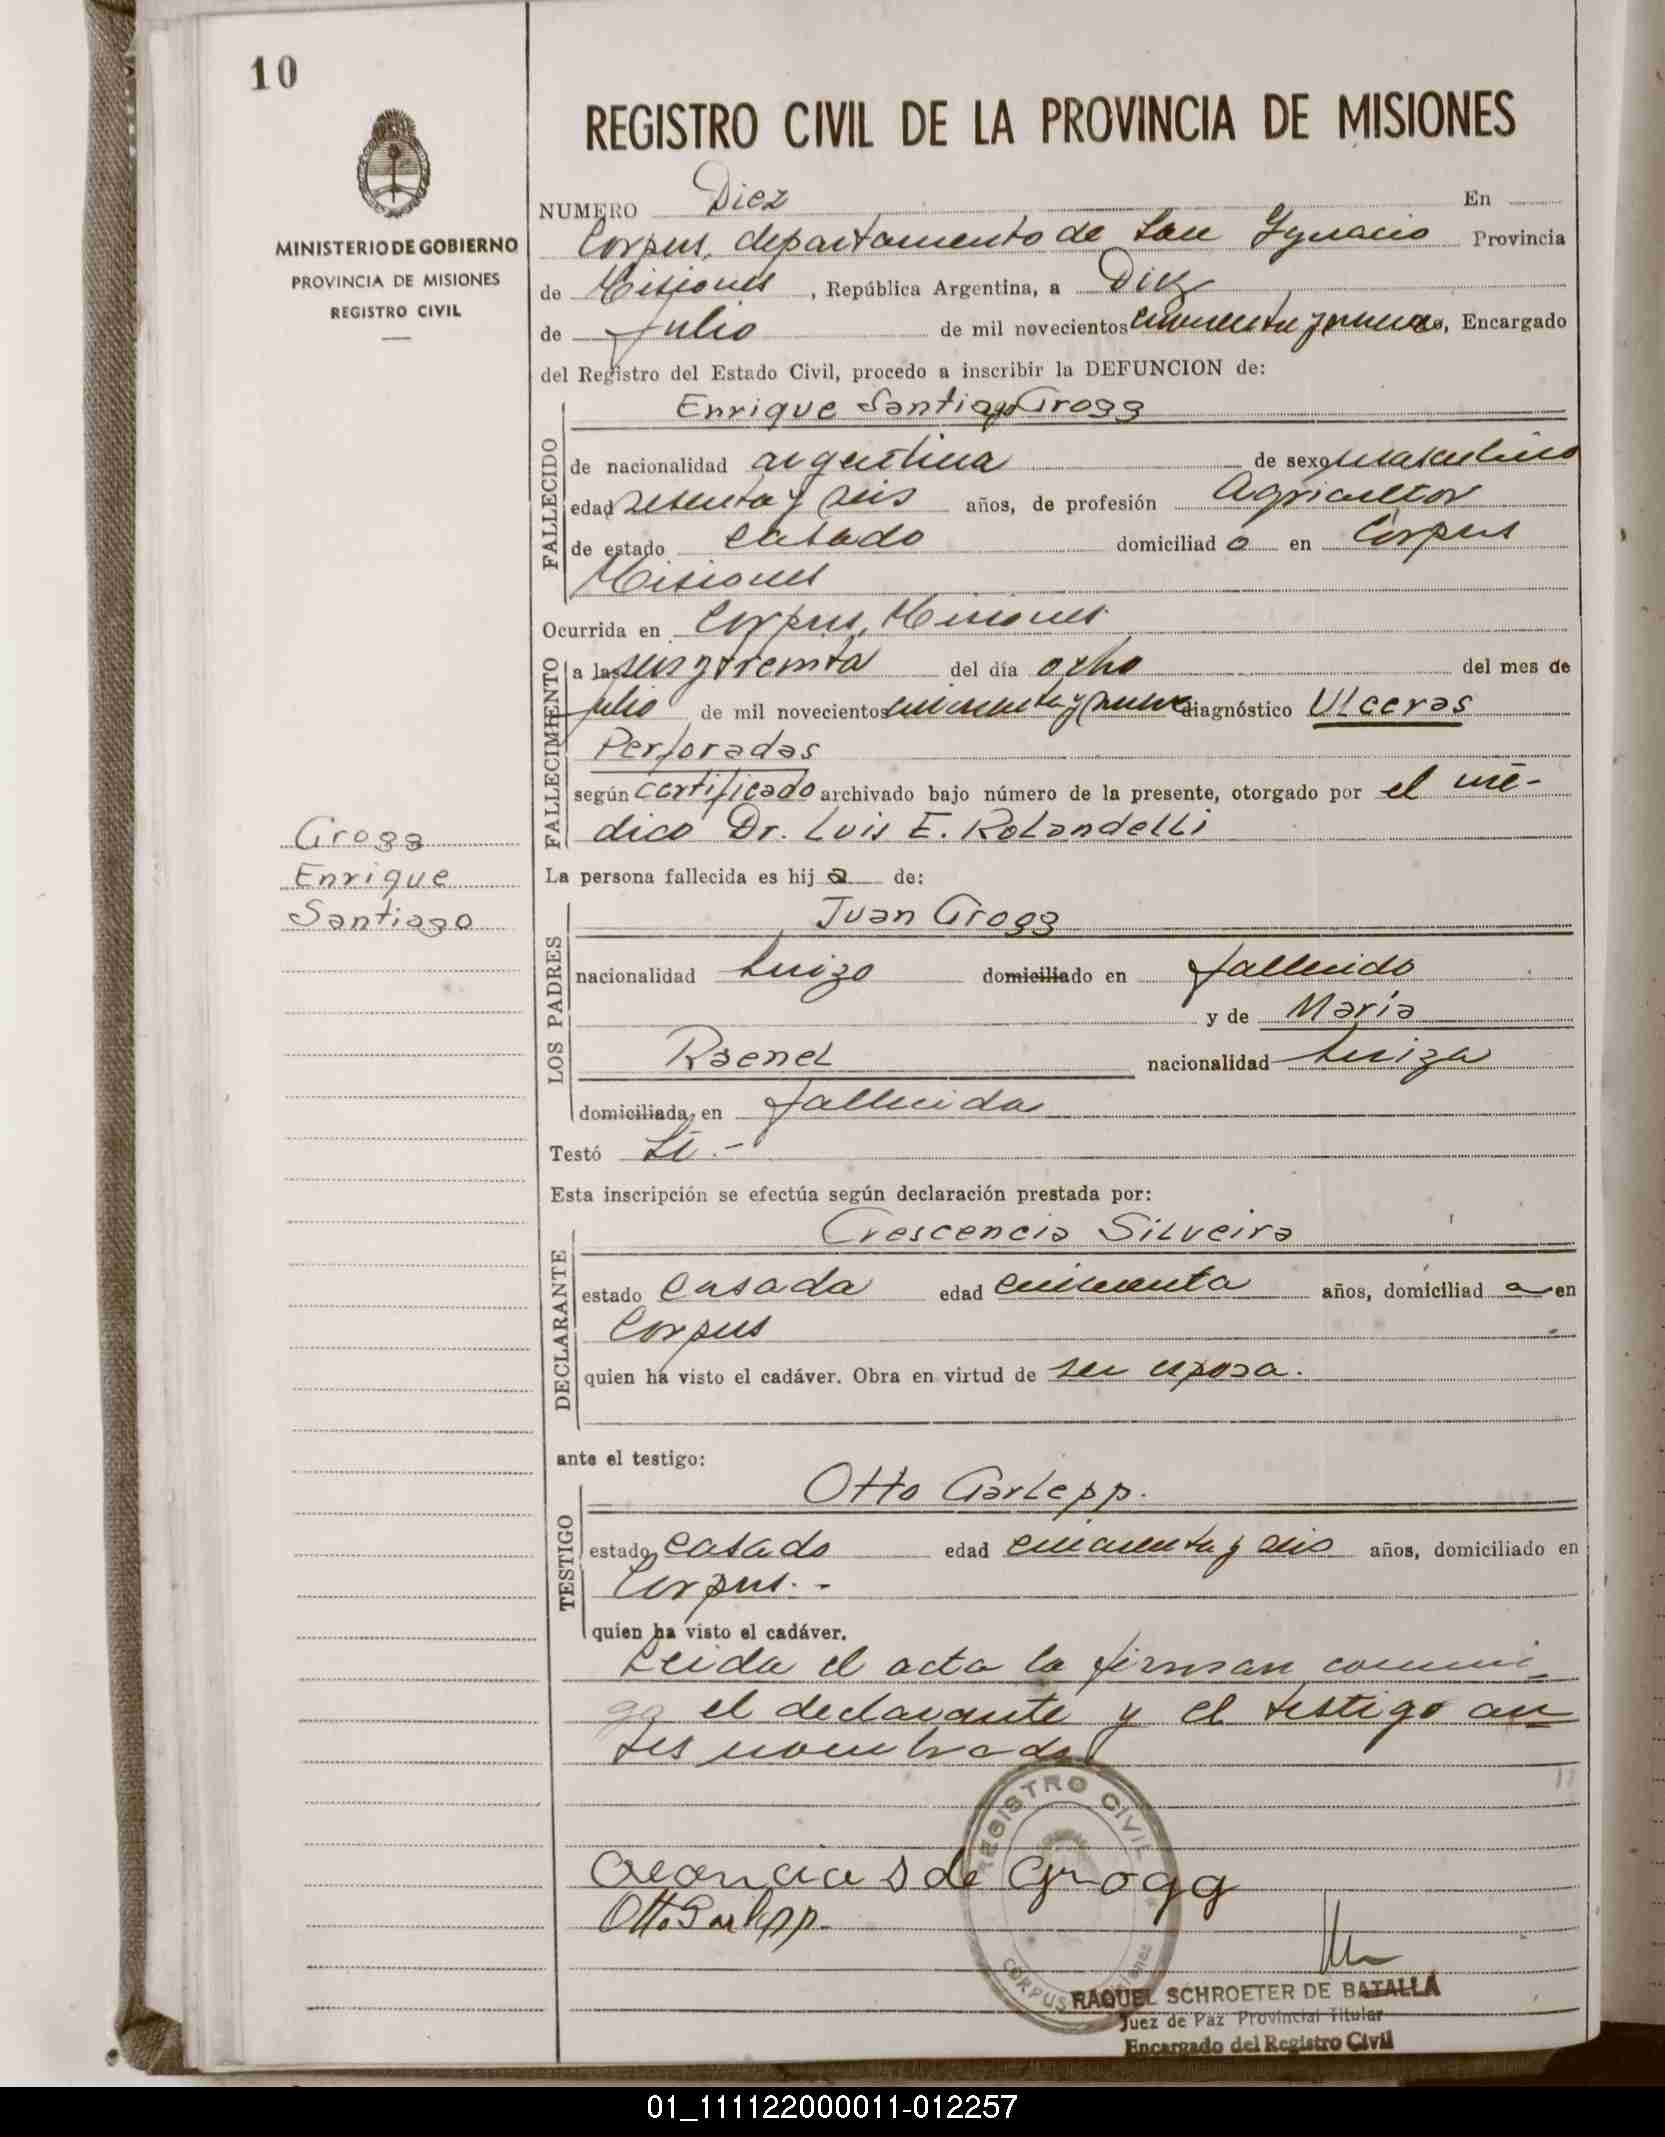 10
MINISTERIO DE GOBIERNO
PROVINCIA DE MISIONES
REGISTRO CIVIL
Grogg
Enrique
Santiago
REGISTRO CIVIL DE LA PROVINCIA DE MISIONES
NUMERO Diez En
Corpus, departamento de San Ygnacio Provincia
de Misiones, República Argentina, a Diez
de Julio de mil novecientos cincuenta y nueve, Encargado
del Registro del Estado Civil, procedo a inscribir la DEFUNCION de:
Enrique Santiago Grogg
FALLECIDO
de nacionalidad argentina de sexo masculino
edad sesenta y seis años, de profesión Agricultor
de estado casado domiciliad o en Corpus
Misiones
Ocurrida en Corpus, Misiones
FALLECIMIENTO
a las seis y treinta del día ocho del mes de
julio de mil novecientos cincuenta y nueve diagnóstico Ulceras
Perforadas
según certificado archivado bajo número de la presente, otorgado por el mé-
dico Dr. Luis E. Rolandelli
La persona fallecida es hij o de:
LOS PADRES
Juan Grogg
nacionalidad suizo domiciliado en fallecido
y de María
Raenel nacionalidad suiza
domiciliada en fallecida
Testó
Esta inscripción se efectúa según declaración prestada por:
DECLARANTE
Crescencia Silveira
estado casada edad cincuenta años, domiciliad a en
Corpus
quien ha visto el cadáver. Obra en virtud de ser esposa.
ante el testigo:
TESTIGO
Otto Garlepp.
estado casado edad cincuenta y seis años, domiciliado en
Corpus.-
quien ha visto el cadáver.
Leida el acta la firman conmi-
go el declarante y el testigo an-
tes nombrado
REGISTRO CIVIL
CORPUS Misiones
S de Grogg
Otto Garlepp.
RAQUEL SCHROETER DE BATALLA
Juez de Paz Provincial Titular
Encargado del Registro Civil
01_111122000011-012257